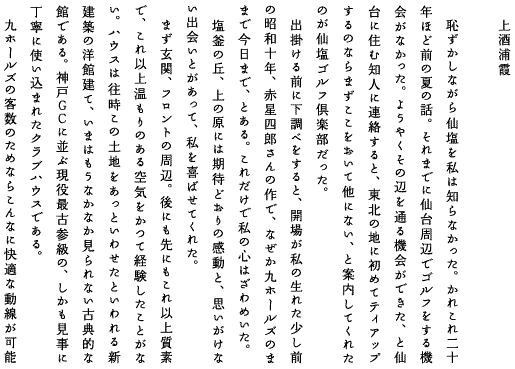 上酒浦霞
恥ずかしながら仙塩を私は知らなかった。かれこれ二十
年ほど前の夏の話。それまでに仙台周辺でゴルフをする機
会がなかった。ようやくその辺を通る機会ができた、と仙
台に住む知人に連絡すると、東北の地に初めてティアップ
するのならまずここをおいて他にない、と案内してくれた
のが仙塩ゴルフ倶楽部だった。
出掛ける前に下調べをすると、開場が私の生れた少し前
の昭和十年、赤星四郎さんの作で、なぜか九ホールズのま
まで今日まで、とある。これだけで私の心はざわめいた。
塩釜の丘、上の原には期待どおりの感動と、思いがけな
い出会いとがあって、私を喜ばせてくれた。
まず玄関、フロントの周辺。後にも先にもこれ以上質素
で、これ以上温もりのある空気をかつて経験したことがな
い。ハウスは往時この土地をあっといわせたといわれる新
建築の洋館建て、いまはもうなかなか見られない古典的な
館である。神戸GCに並ぶ現役最古参級の、しかも見事に
丁寧に使い込まれたクラブハウスである。
九ホールズの客数のためならこんなに快適な動線が可能